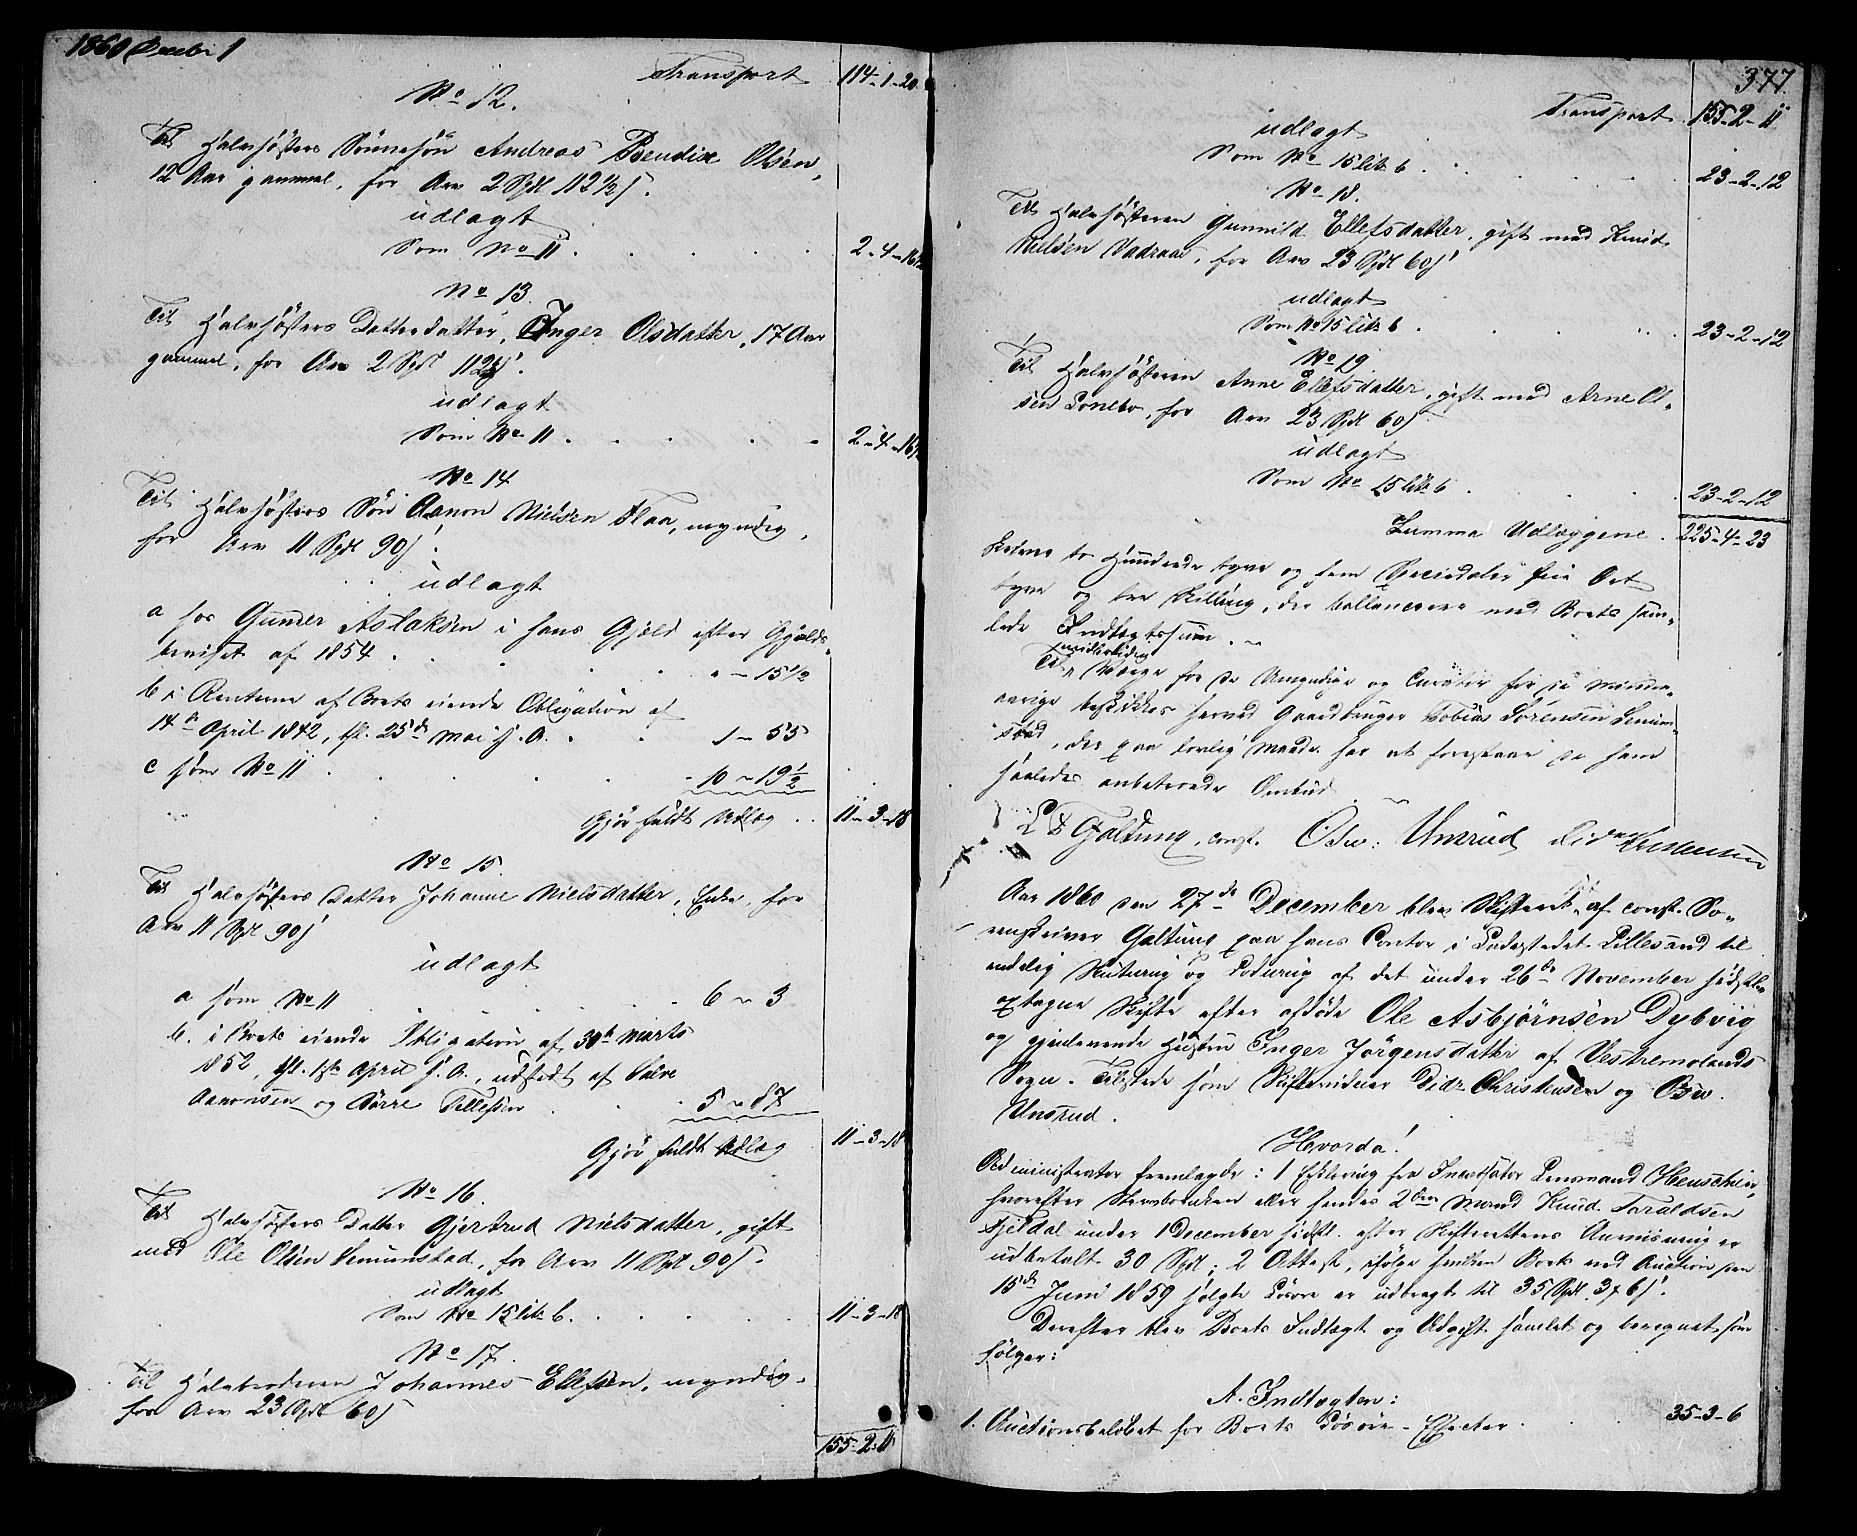 1860 Decbr 1
Transport 114-1-20
No 12.
Til Halvsøsters Sønnesøn Andreas Bendix Olsen,
12 Aar gammel, for Arv 2 Spdl 112½ s.
udlagt
Som No 11 . . . . . 2-4-16½
No 13.
Til Halvsøsters Datterdatter, Inger Olsdatter, 17 Aar
gammel, for Arv 2 Spdl 112½ s.
udlagt
Som No 11 . . . . . 2-4-16½
No 14
Til Halvsøsters Søn Aanon Nielsen Flaa, myndig,
for Arv 11 Spdl 90 s.
udlagt
a hos Gunder Aslaksen i hans Gjæld efter Gjælds-
beviset af 1854 . . . . " - 15½
b i Renterne af Boets eiende Obligation af
14de April 1842, thl. 25de Mai s. A. . . 1 - 55
c som No 11 . . . . . 10 - 19½
Gjør fuldt Udlæg . . 11-3-18
No 15
Til Halvsøsters Datter Johanne Nielsdatter, Enke, for
Arv 11 Spdl 90 s
udlagt
a som No 11 . . . . . 6 - 3
b. i Boets eiende Obligation af 30te Marts
1852, thl. 1ste April s. A., udstedt af Salve
Aanonsen og Børre Tellefsen . . . 5 - 87
Gjør fuldt Udlæg 11-3-18
No 16.
Til Halvsøsters Datter Gjertrud Nielsdatter, gift
med Ole Olsen Semumstad, for Arv 11 Spdl 90 s.
udlagt
Som No 15 litr b. . . . . . 11-3-18
No 17.
Til Halvbroderen Johannes Ellefsen, myndig,
for Arv 23 Spdl 60 s
155-2-11
377.
Transport 155-2-11
udlagt
Som No 15 litr b . . . . . 23-2-12
No 18.
Til Halvsøsteren Gunnild Ellefsdatter, gift med Knud
Nielsen, for Arv 23 Spdl 60 s
udlagt
Som No 15 litr b . . . . . 23-2-12
No 19
Til Halvsøsteren Anne Ellefsdatter, gift med Arne Ol-
sen, for Arv 23 Spdl 60 s.
udlagt
Som No 15 litr b . . . . . 23-2-12
Summa Udlæggene . 225-4-23
skriver to Hundrede tyve og fem Speciedaler fire Ort
tyve og tre Skilling, der ballancerer med Boets sam-
lede Indtægtssum. -
Til midlertidig Værge for de Umyndige og Curator for de Minder-
aarige beskikkes herved Gaardbruger Tobias Sørensen
, der paa lovlig Maade har at forestaae det ham
saaledes anbetroede Ombud. -
Galtung, const. Osw: Unsrud Didr Christensen
Aar 1860 den 27de December blev Skifteret af const. So-
renskriver Galtung paa hans Contor i Ladestedet Lillesand til
endelig Slutning og Lodning af det under 26de November sidstl.
extagne Skifte efter afdøde Ole Asbjørnsen Dybvig
og gjenlevende Hustru Inger Jørgensdatter af Vestremolands
Sogn. Tilstede som Skiftevidner Didr Christensen og Osw.
Unsrud.
Hvorda!
Administrator fremlagde: 1 Erklæring fra Incassator Lensmand Henschien,
hvorefter Stervboenken eller hendes 2den Mand Knud Toraldsen
Fjeldal under 1 December sidstl. efter Skifterettens Anviisning er
udbetalt 30 Spdl; 2 Attest, ifølge hvilken Boets ved Auction den
15de Juni 1859 solgte Løsøre er udbragt til 35 Spdl. 3 # 6 s.
Derefter blev Boets Indtægt og Udgift samlet og beregnet som
følger:
A. Indtægten:
1. Auctionsbeløbet for Boets Løsøre-Effecter . . 35-3-6